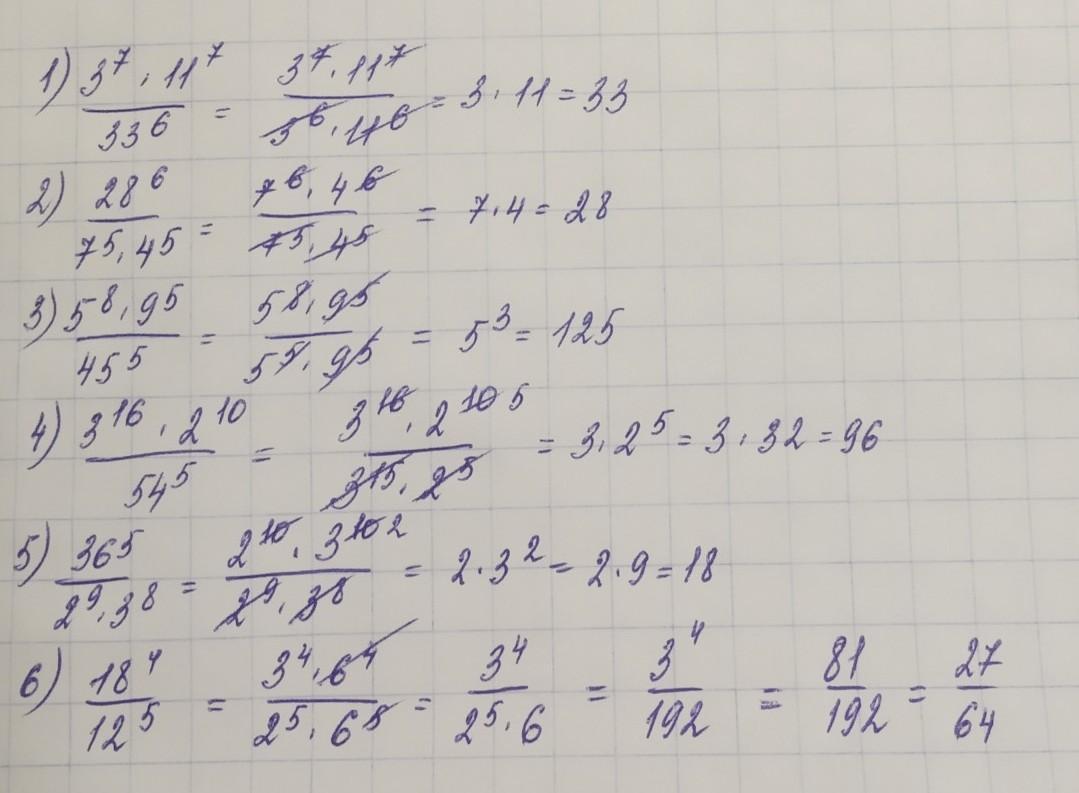 1) 3^7 · 11^7 / 33^6 = 3^7 · 11^7 / 3^6 · 11^6 = 3 · 11 = 33
2) 28^6 / 7^5 · 4^5 = 7^6 · 4^6 / 7^5 · 4^5 = 7 · 4 = 28
3) 5^8 · 9^5 / 45^5 = 5^8 · 9^5 / 5^5 · 9^5 = 5^3 = 125
4) 3^16 · 2^10 / 54^5 = 3^16 · 2^10 5 / 3^15 · 2^5 = 3 · 2^5 = 3 · 32 = 96
5) 36^5 / 2^9 · 3^8 = 2^10 · 3^10 2 / 2^9 · 3^8 = 2 · 3^2 = 2 · 9 = 18
6) 18^4 / 12^5 = 3^4 · 6^4 / 2^5 · 6^5 = 3^4 / 2^5 · 6 = 3^4 / 192 = 81 / 192 = 27 / 64